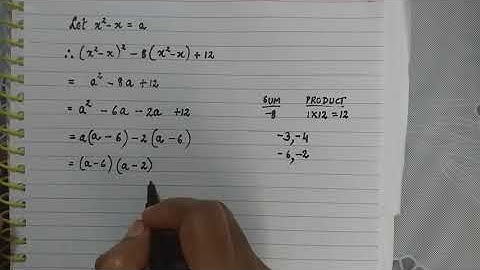 Let x² - x = a
∴ (x² - x)² - 8(x² - x) + 12
= a² - 8a + 12
= a² - 6a - 2a + 12
= a(a - 6) - 2(a - 6)
= (a - 6)(a - 2)
SUM PRODUCT
-8 1X12 = 12
-3, -4
-6, -2